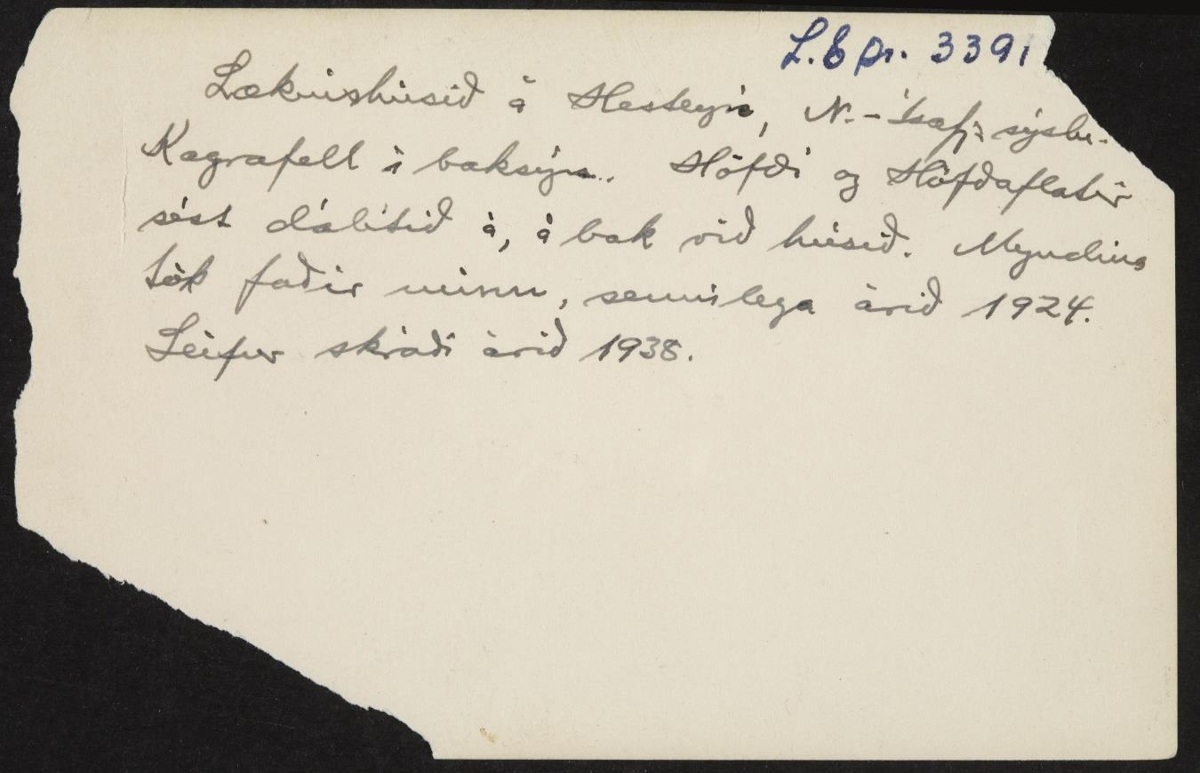 L.E pr. 3391
Læknishúsið á Hesteyri, N.-Ísafj. sýslu.
Kagrafell í baksýn. Höfði og Höfðaflatir
sést dálítið á, á bak við húsið. Myndina
tók faðir minn, sennilega árið 1924.
Leifur skráði árið 1938.